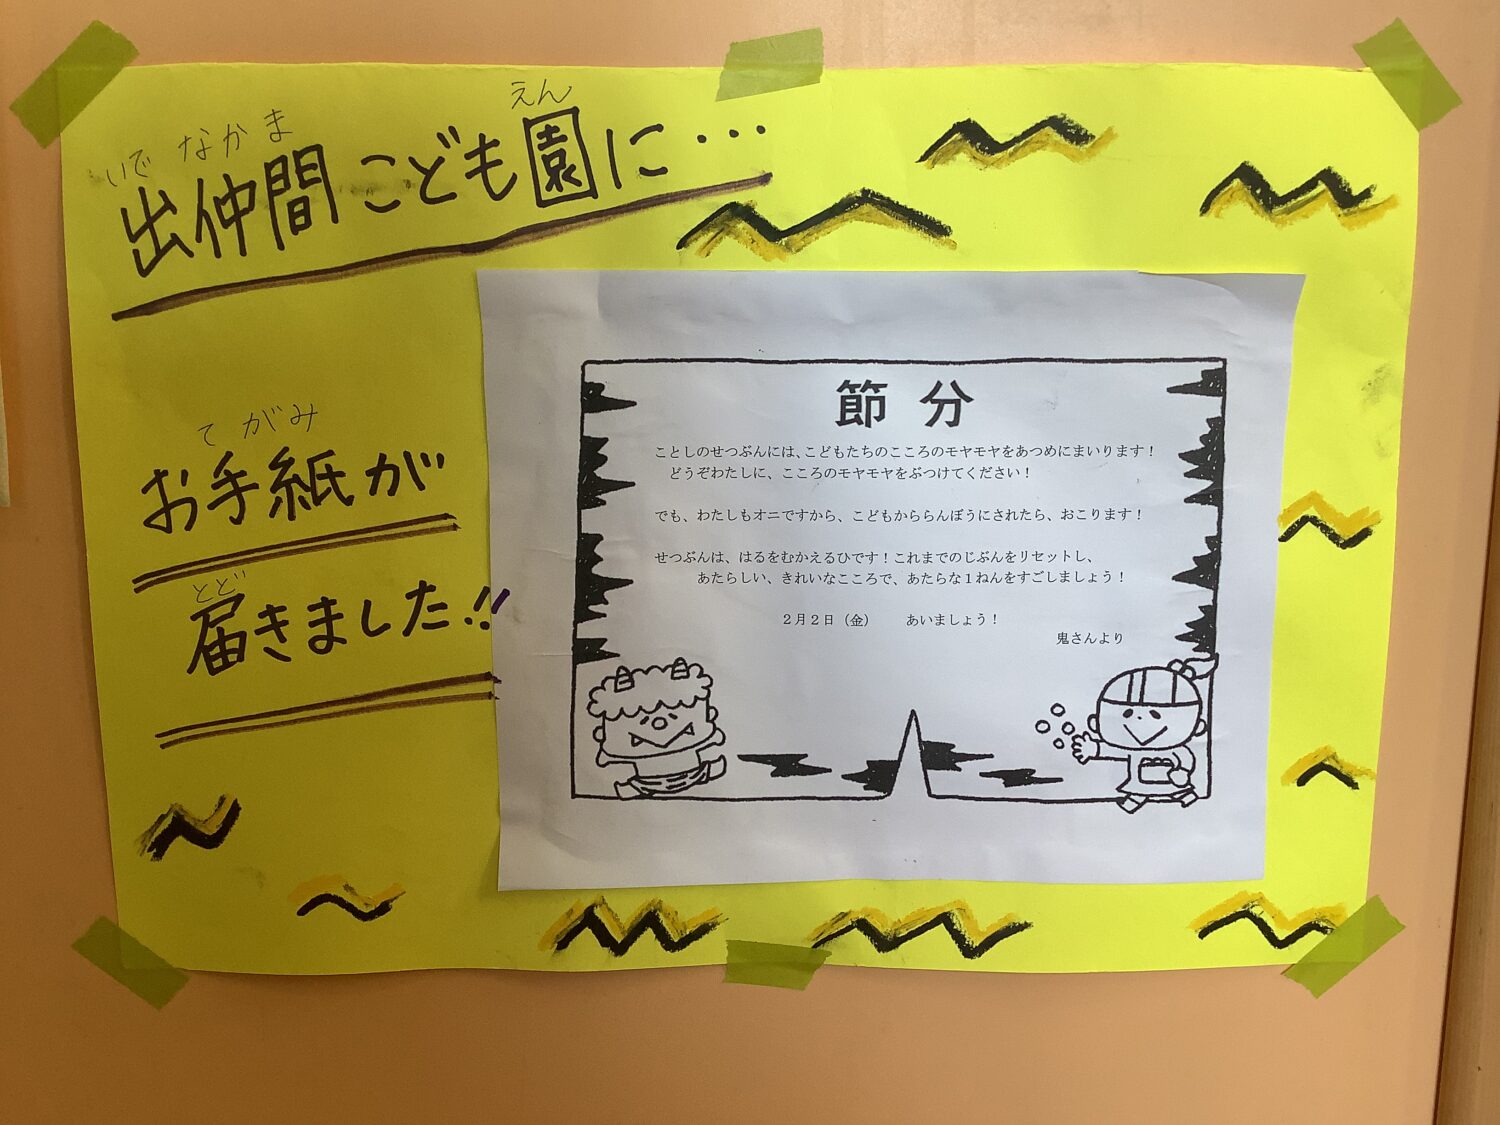 いでなかま えん
出仲間こども園に…
てがみ
お手紙が
とど
届きました!!
節分
ことしのせつぶんには、こどもたちのこころのモヤモヤをあつめにまいります！
どうぞわたしに、こころのモヤモヤをぶつけてください！
でも、わたしもオニですから、こどもかららんぼうにされたら、おこります！
せつぶんは、はるをむかえるひです！これまでのじぶんをリセットし、
あたらしい、きれいなこころで、あたらな１ねんをすごしましょう！
２月２日（金） あいましょう！
鬼さんより